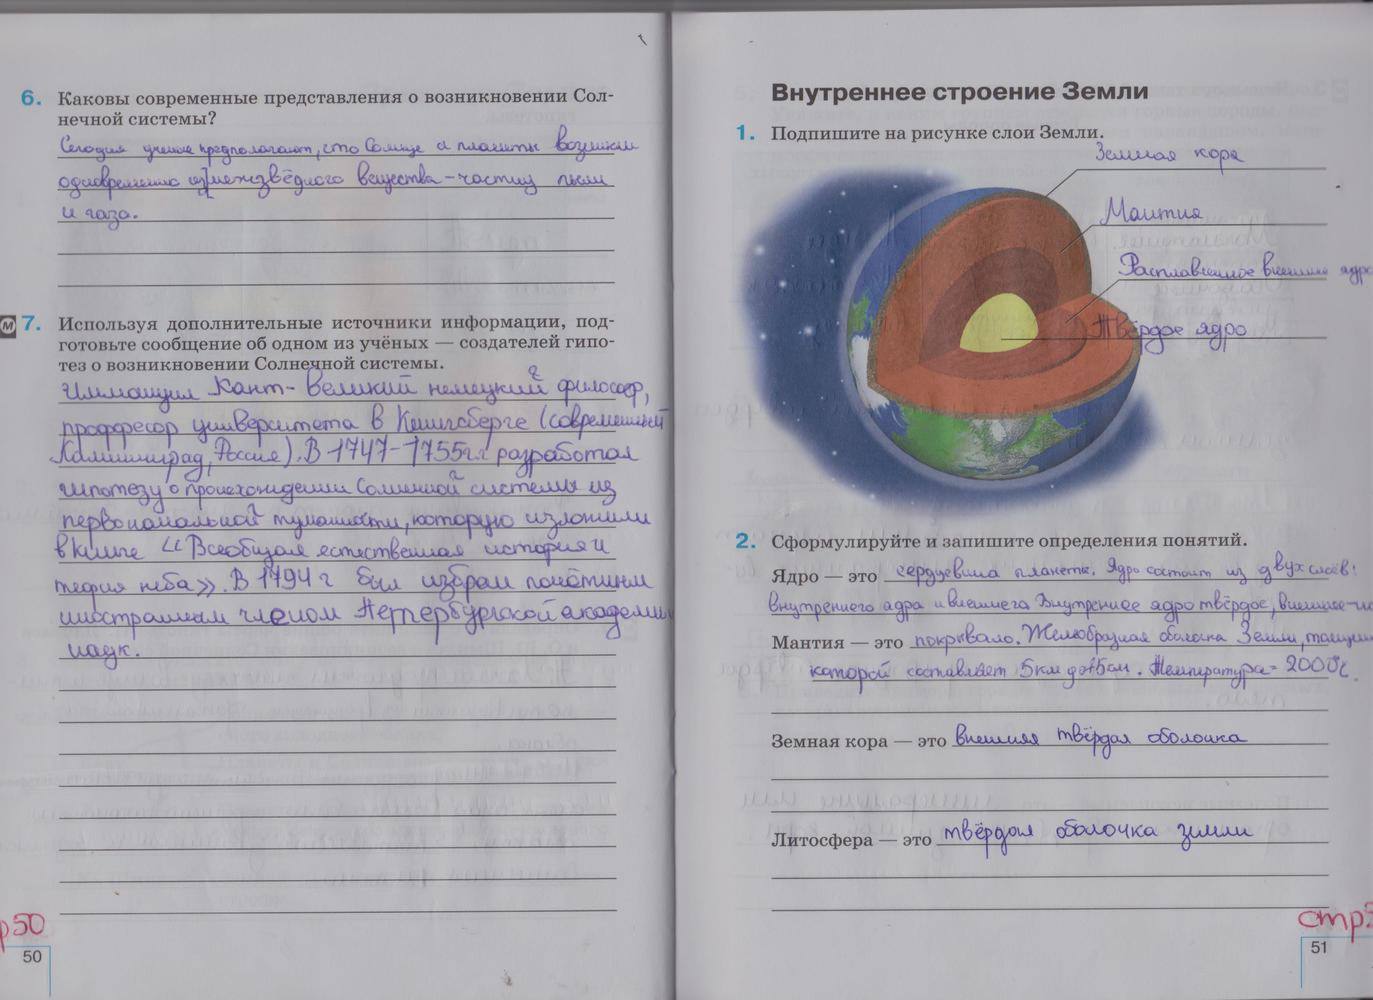 6. Каковы современные представления о возникновении Сол-
нечной системы?
Сегодня ученые предполагают, что Солнце и планеты возникли
одновременно из межзвёздного вещества - частиц пыли
и газа.
М 7. Используя дополнительные источники информации, под-
готовьте сообщение об одном из учёных — создателей гипо-
тез о возникновении Солнечной системы.
Иммануил Кант - Великий немецкий философ,
проффесор университета в Кенигсберге (современный
Калининград, Россия). В 1747-1755гг разработал
гипотезу о происхождении Солнечной системы из
первоначальной туманности, которую изложили
в книге «Всеобщая естественная история и
теория неба». В 1794 г был избран почётным
иностранным членом Петербургской академии
наук.
р50
50
Внутреннее строение Земли
1. Подпишите на рисунке слои Земли.
Земная кора
Мантия
Расплавленное внешнее ядро
Твёрдое ядро
2. Сформулируйте и запишите определения понятий.
Ядро — это сердцевина планеты. Ядро состоит из двух слоёв:
внутреннего ядра и внешнего Внутреннее ядро твёрдое, внешнее-
Мантия — это покрывало. Желеобразная оболочка Земли,
которой составляет 5км до . Температура = 2000°с.
Земная кора — это внешняя твёрдая оболочка
Литосфера — это твёрдая оболочка земли
стр5
51